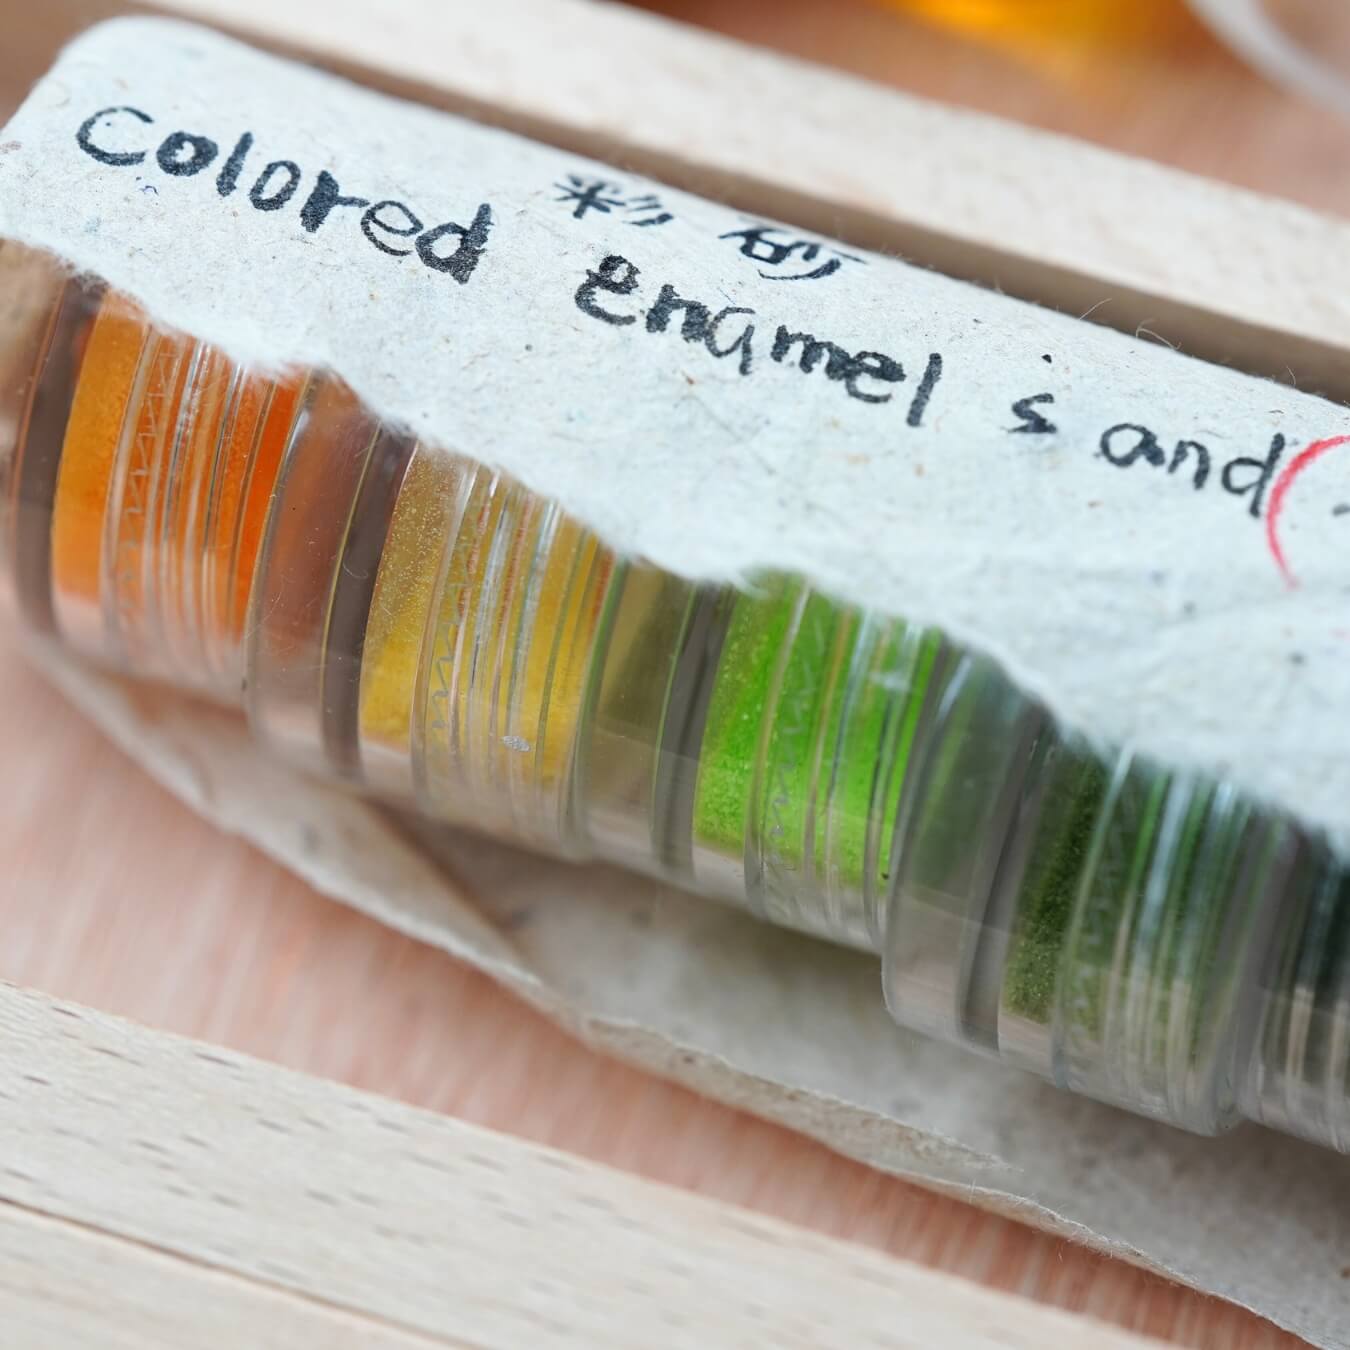 彩砂
Colored Enamel sand(